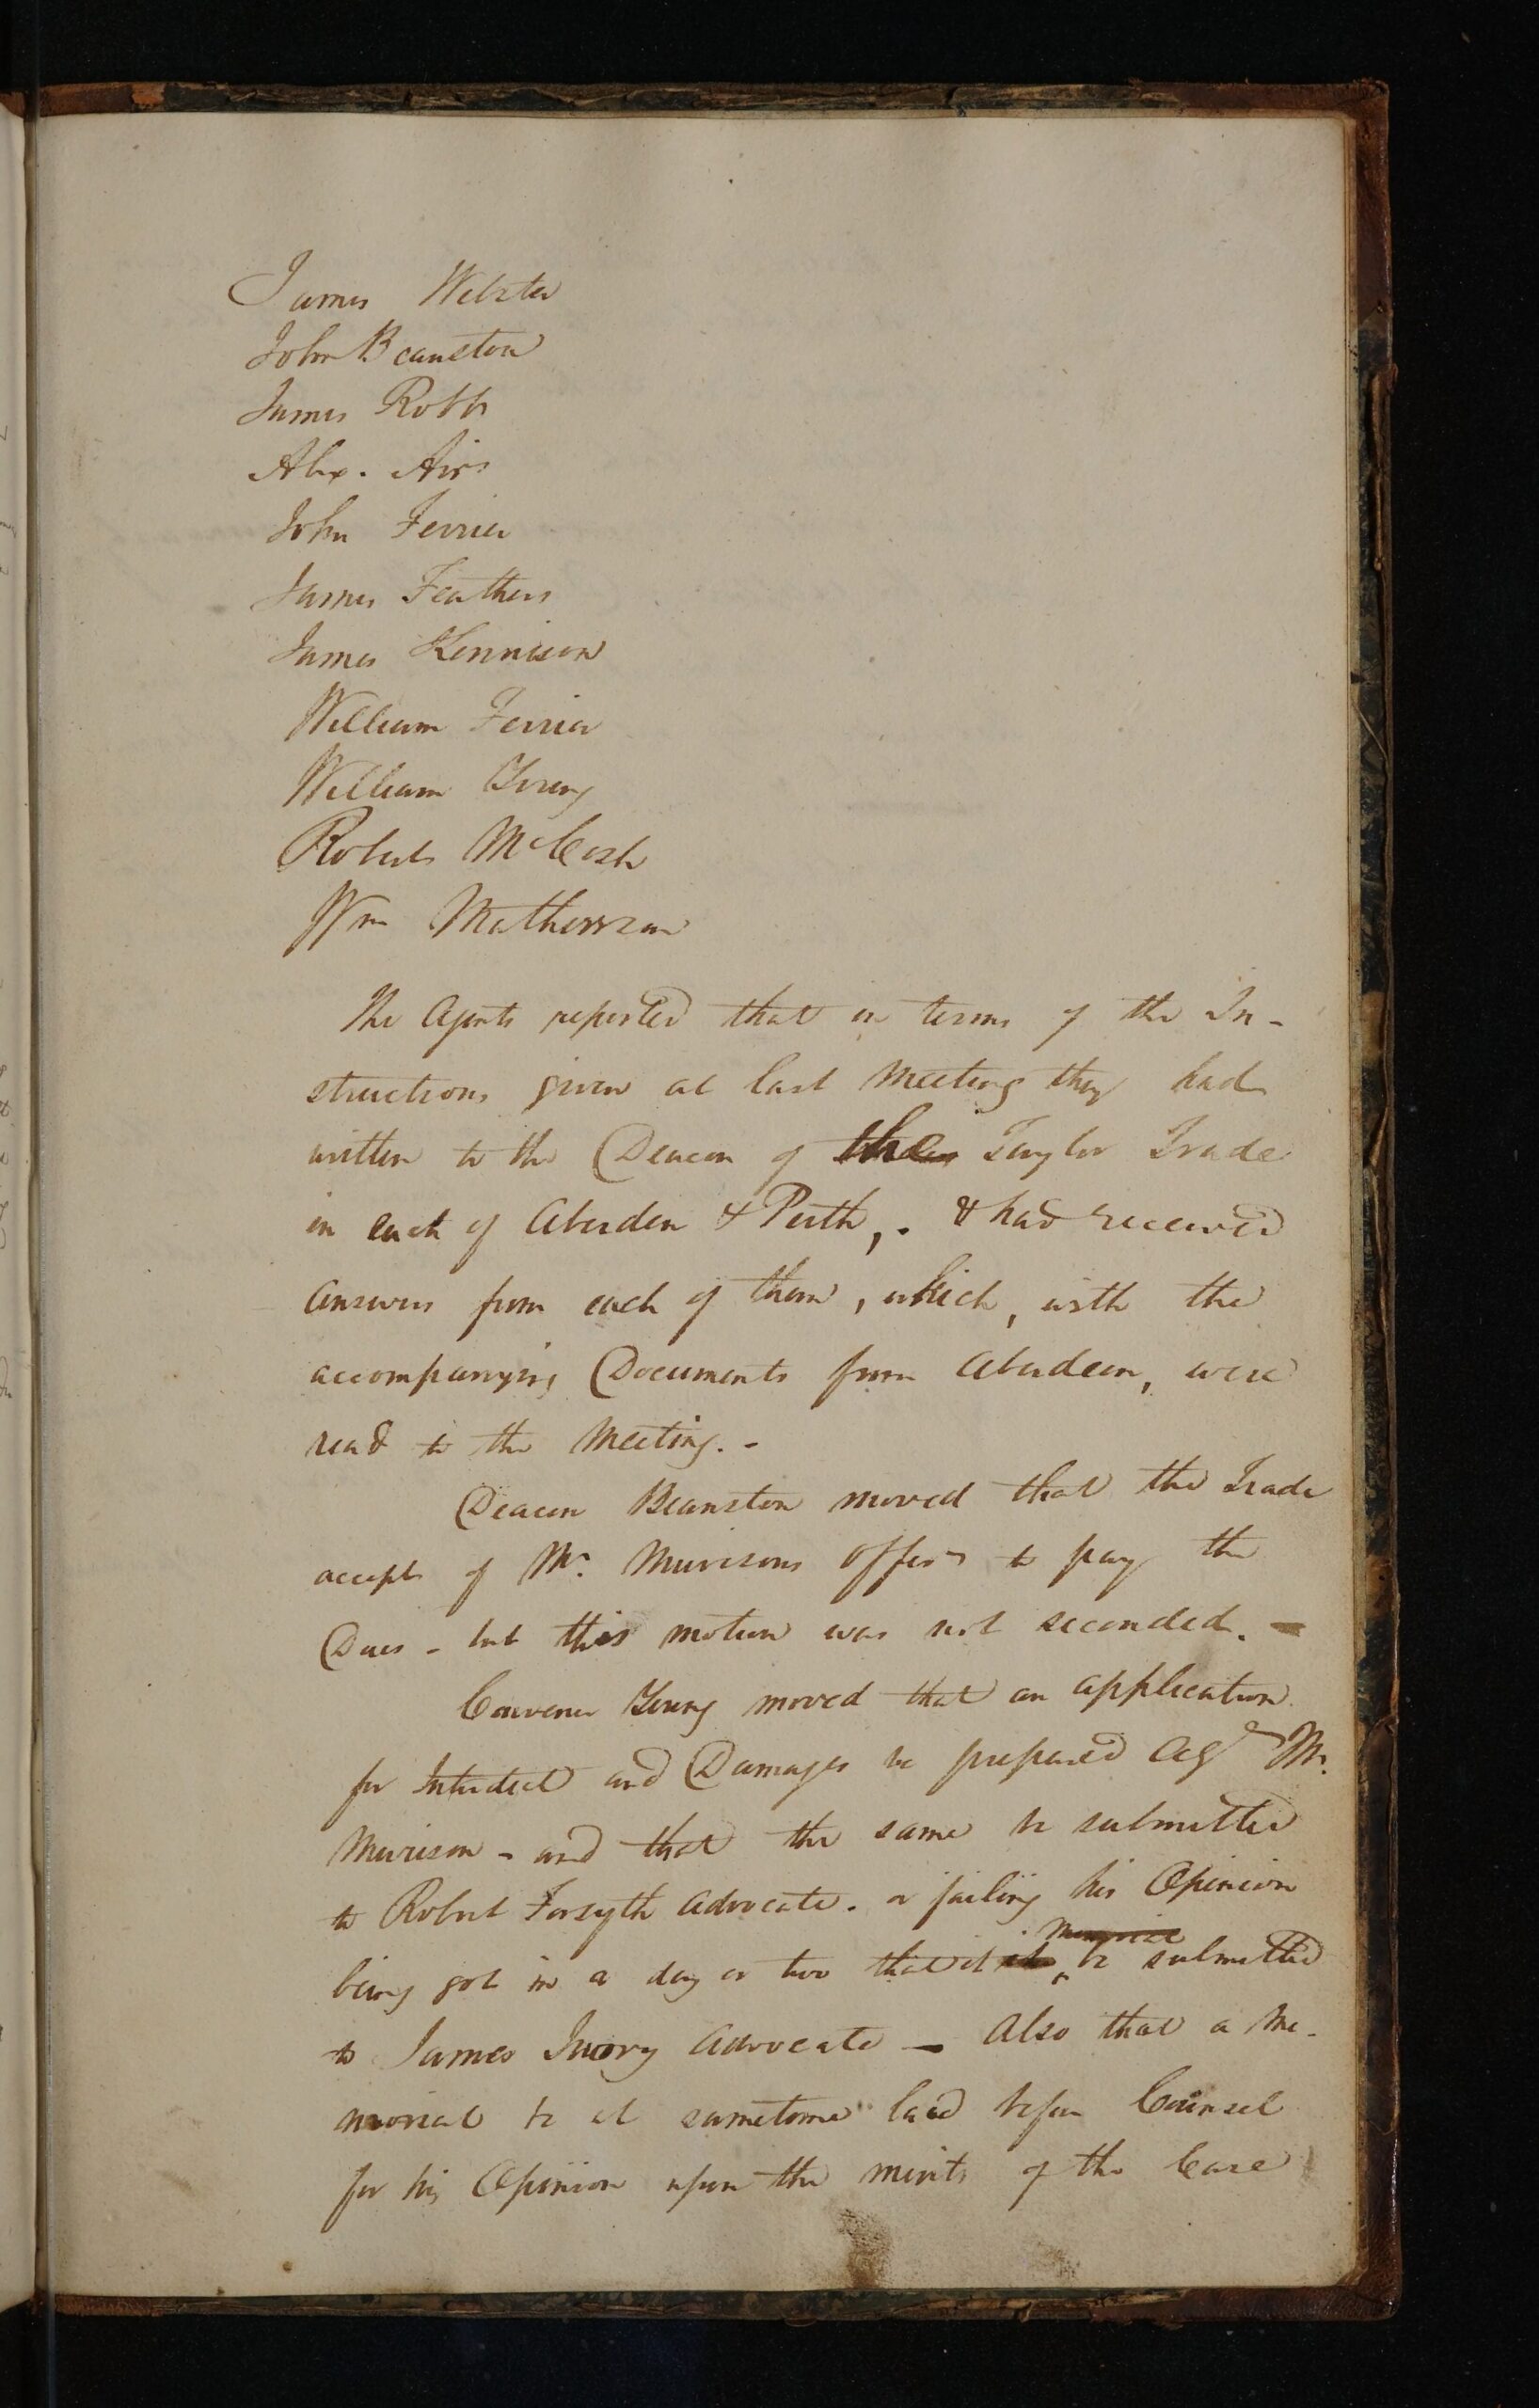 James Webster
John Beanston
James Robb
Alex. Airs
John Ferrier
James Feathers
James Kennison
William Ferrier
William Young
Robert McCosh
Wm Mathewson
The Agents reported that in terms of the In-
structions given at last Meeting they had
written to the Deacon of the Taylor Trade
in each of Aberdeen & Perth, . & had received
answers from each of them, which, with the
accompanying Documents from Aberdeen, were
read to the Meeting. -
Deacon Beanston moved that the Trade
accept of Mr. Murisons offer to pay the
Dues - but this motion was not seconded. -
Convener Young moved that an application
for Interdict and Damages be prepared Agt Mr.
Murison - and that the same be submitted
to Robert Forsyth Advocate. or failing his Opinion
Memorial
being got in a day or two that it be submitted
to James Ivory Advocate - Also that a Me-
morial be at sametime laid before Counsel
for his Opinion upon the merits of the Case